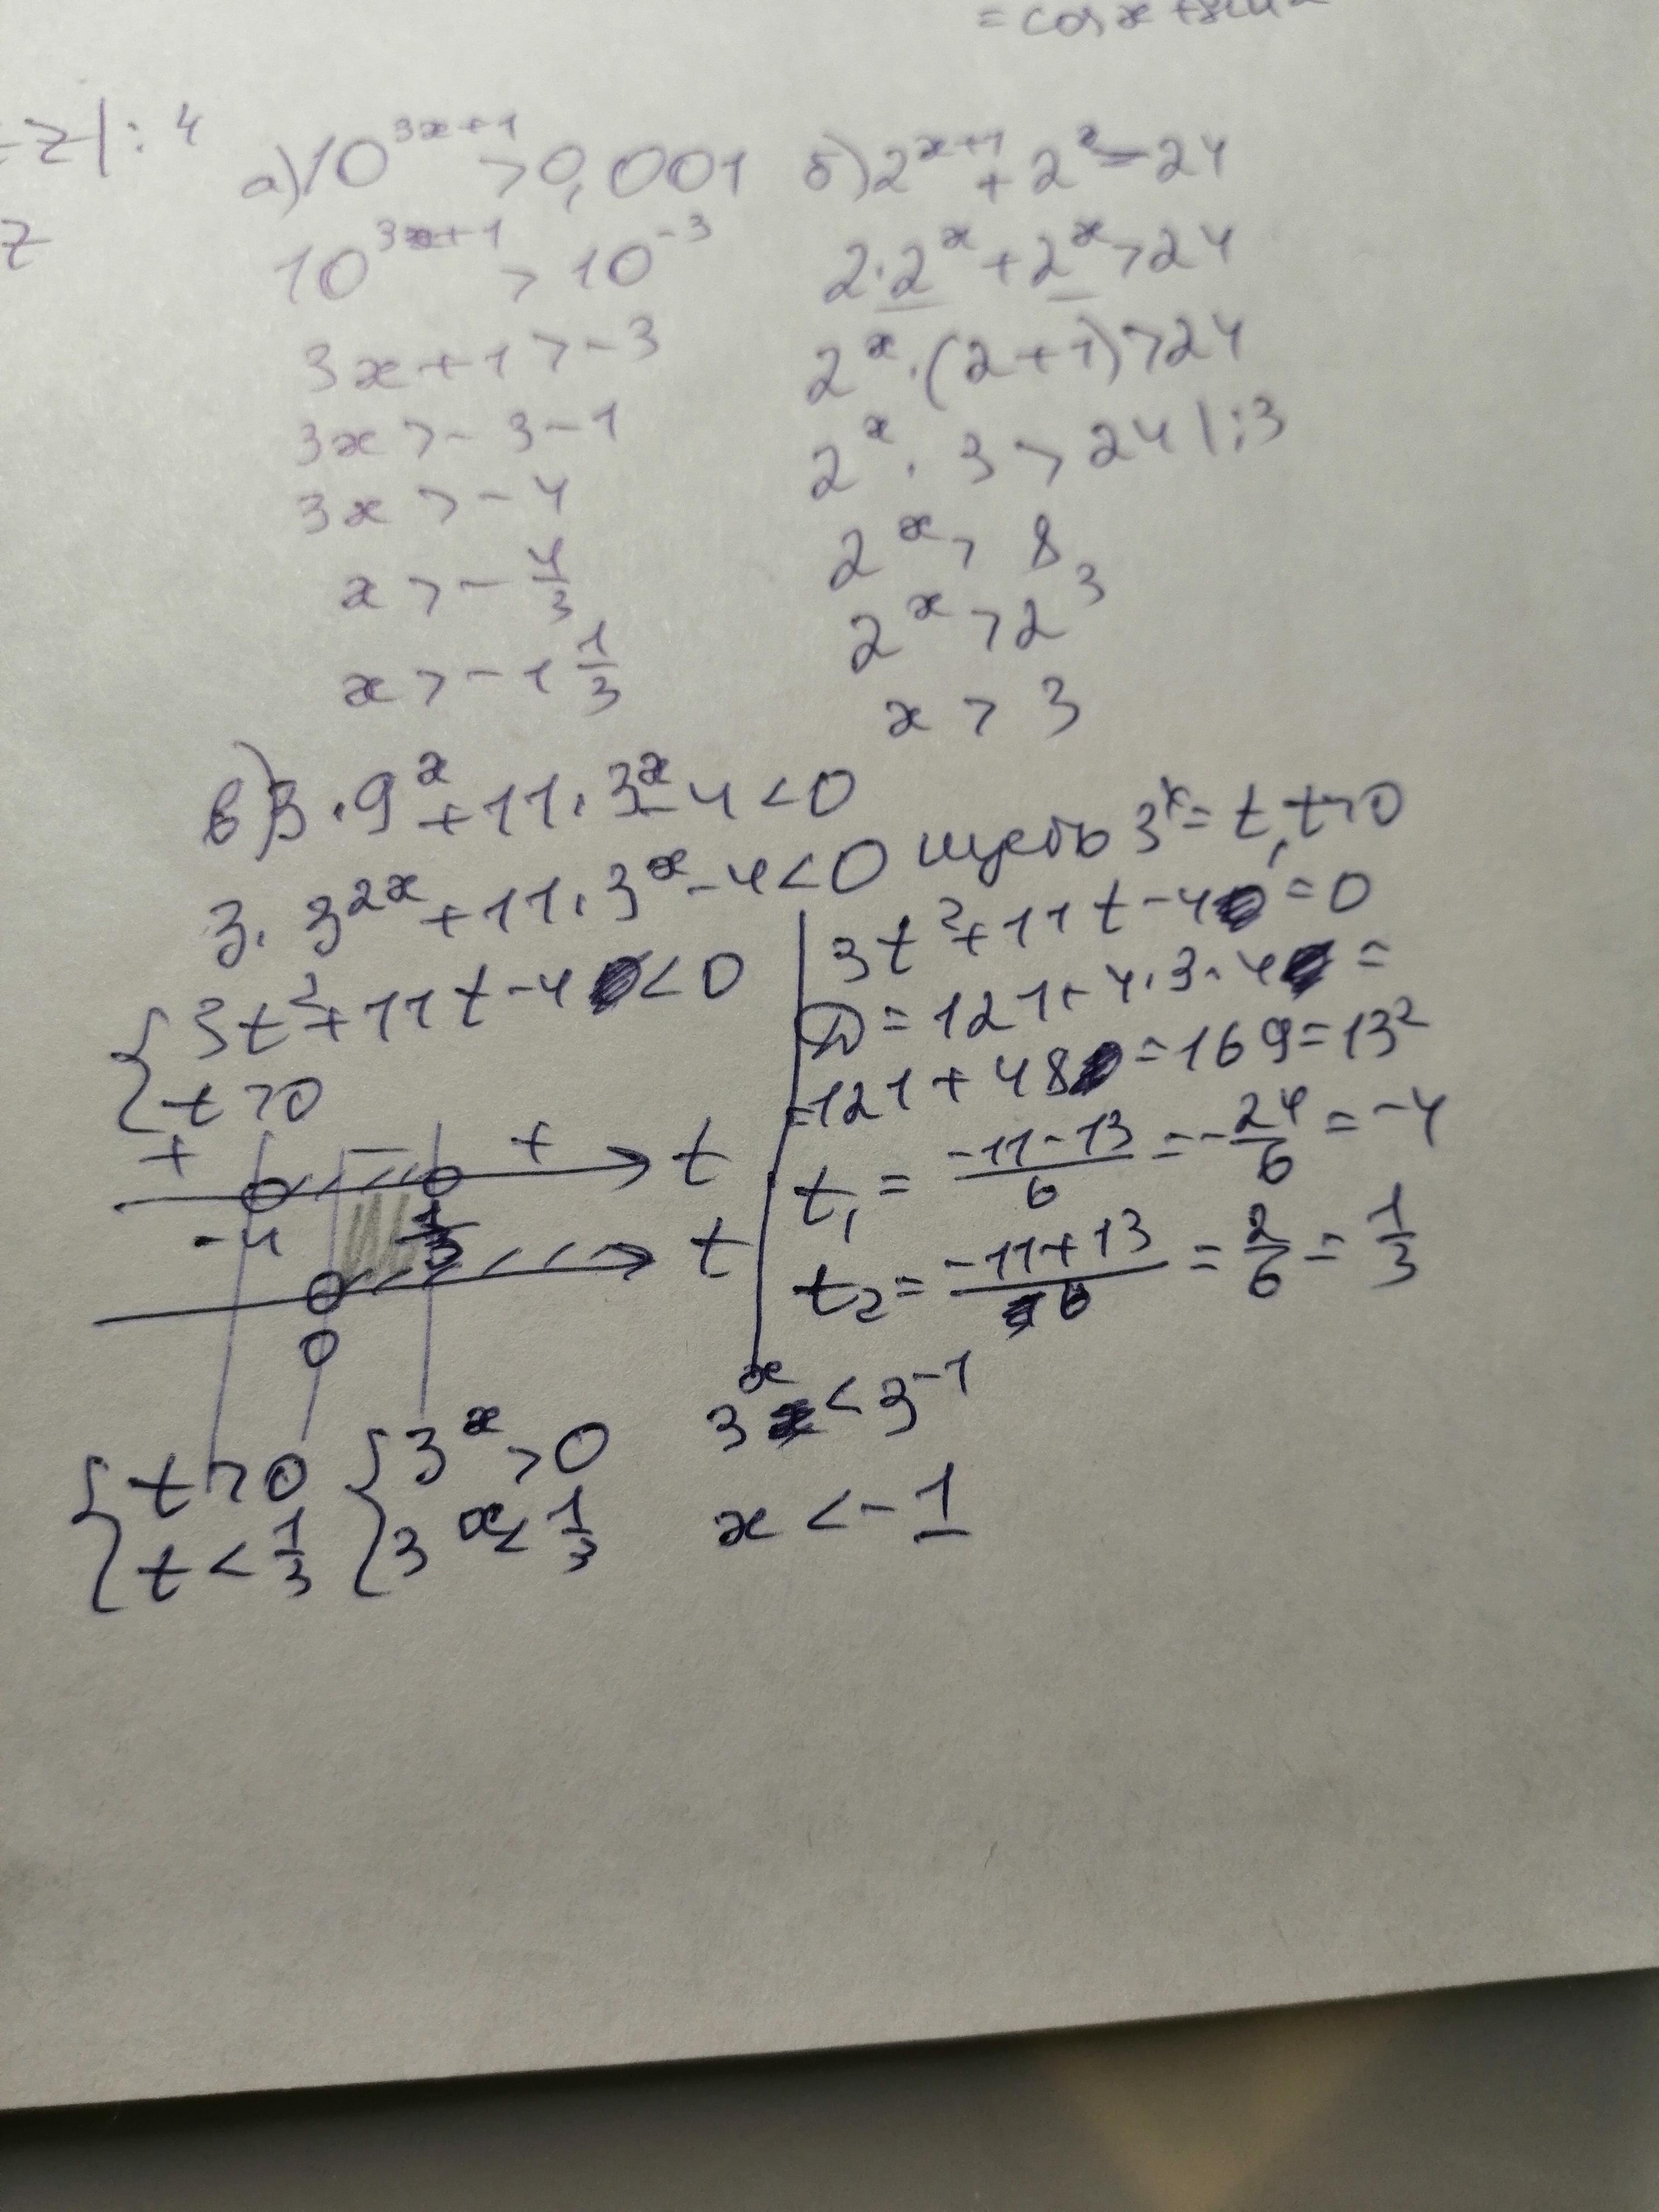 = cos x + sin
z | : 4
z
а) 10^(3x+1) > 0,001
10^(3x+1) > 10^(-3)
3x + 1 > -3
3x > -3 - 1
3x > -4
x > -4/3
x > -1 1/3
б) 2^(x+1) + 2^x > 24
2 · 2^x + 2^x > 24
2^x · (2+1) > 24
2^x · 3 > 24 | : 3
2^x > 8
2^x > 2^3
x > 3
в) 3 · 9^x + 11 · 3^x - 4 < 0
3 · 3^(2x) + 11 · 3^x - 4 < 0 пусть 3^x = t, t > 0
{ 3t² + 11t - 4 < 0
t > 0
+ - + t
-4 1/3
t
0
3t² + 11t - 4 = 0
D = 121 + 4 · 3 · 4 =
= 121 + 48 = 169 = 13²
t₁ = (-11-13)/6 = -24/6 = -4
t₂ = (-11+13)/6 = 2/6 = 1/3
{ t > 0
t < 1/3
{ 3^x > 0
3^x < 1/3
3^x < 3^(-1)
x < -1